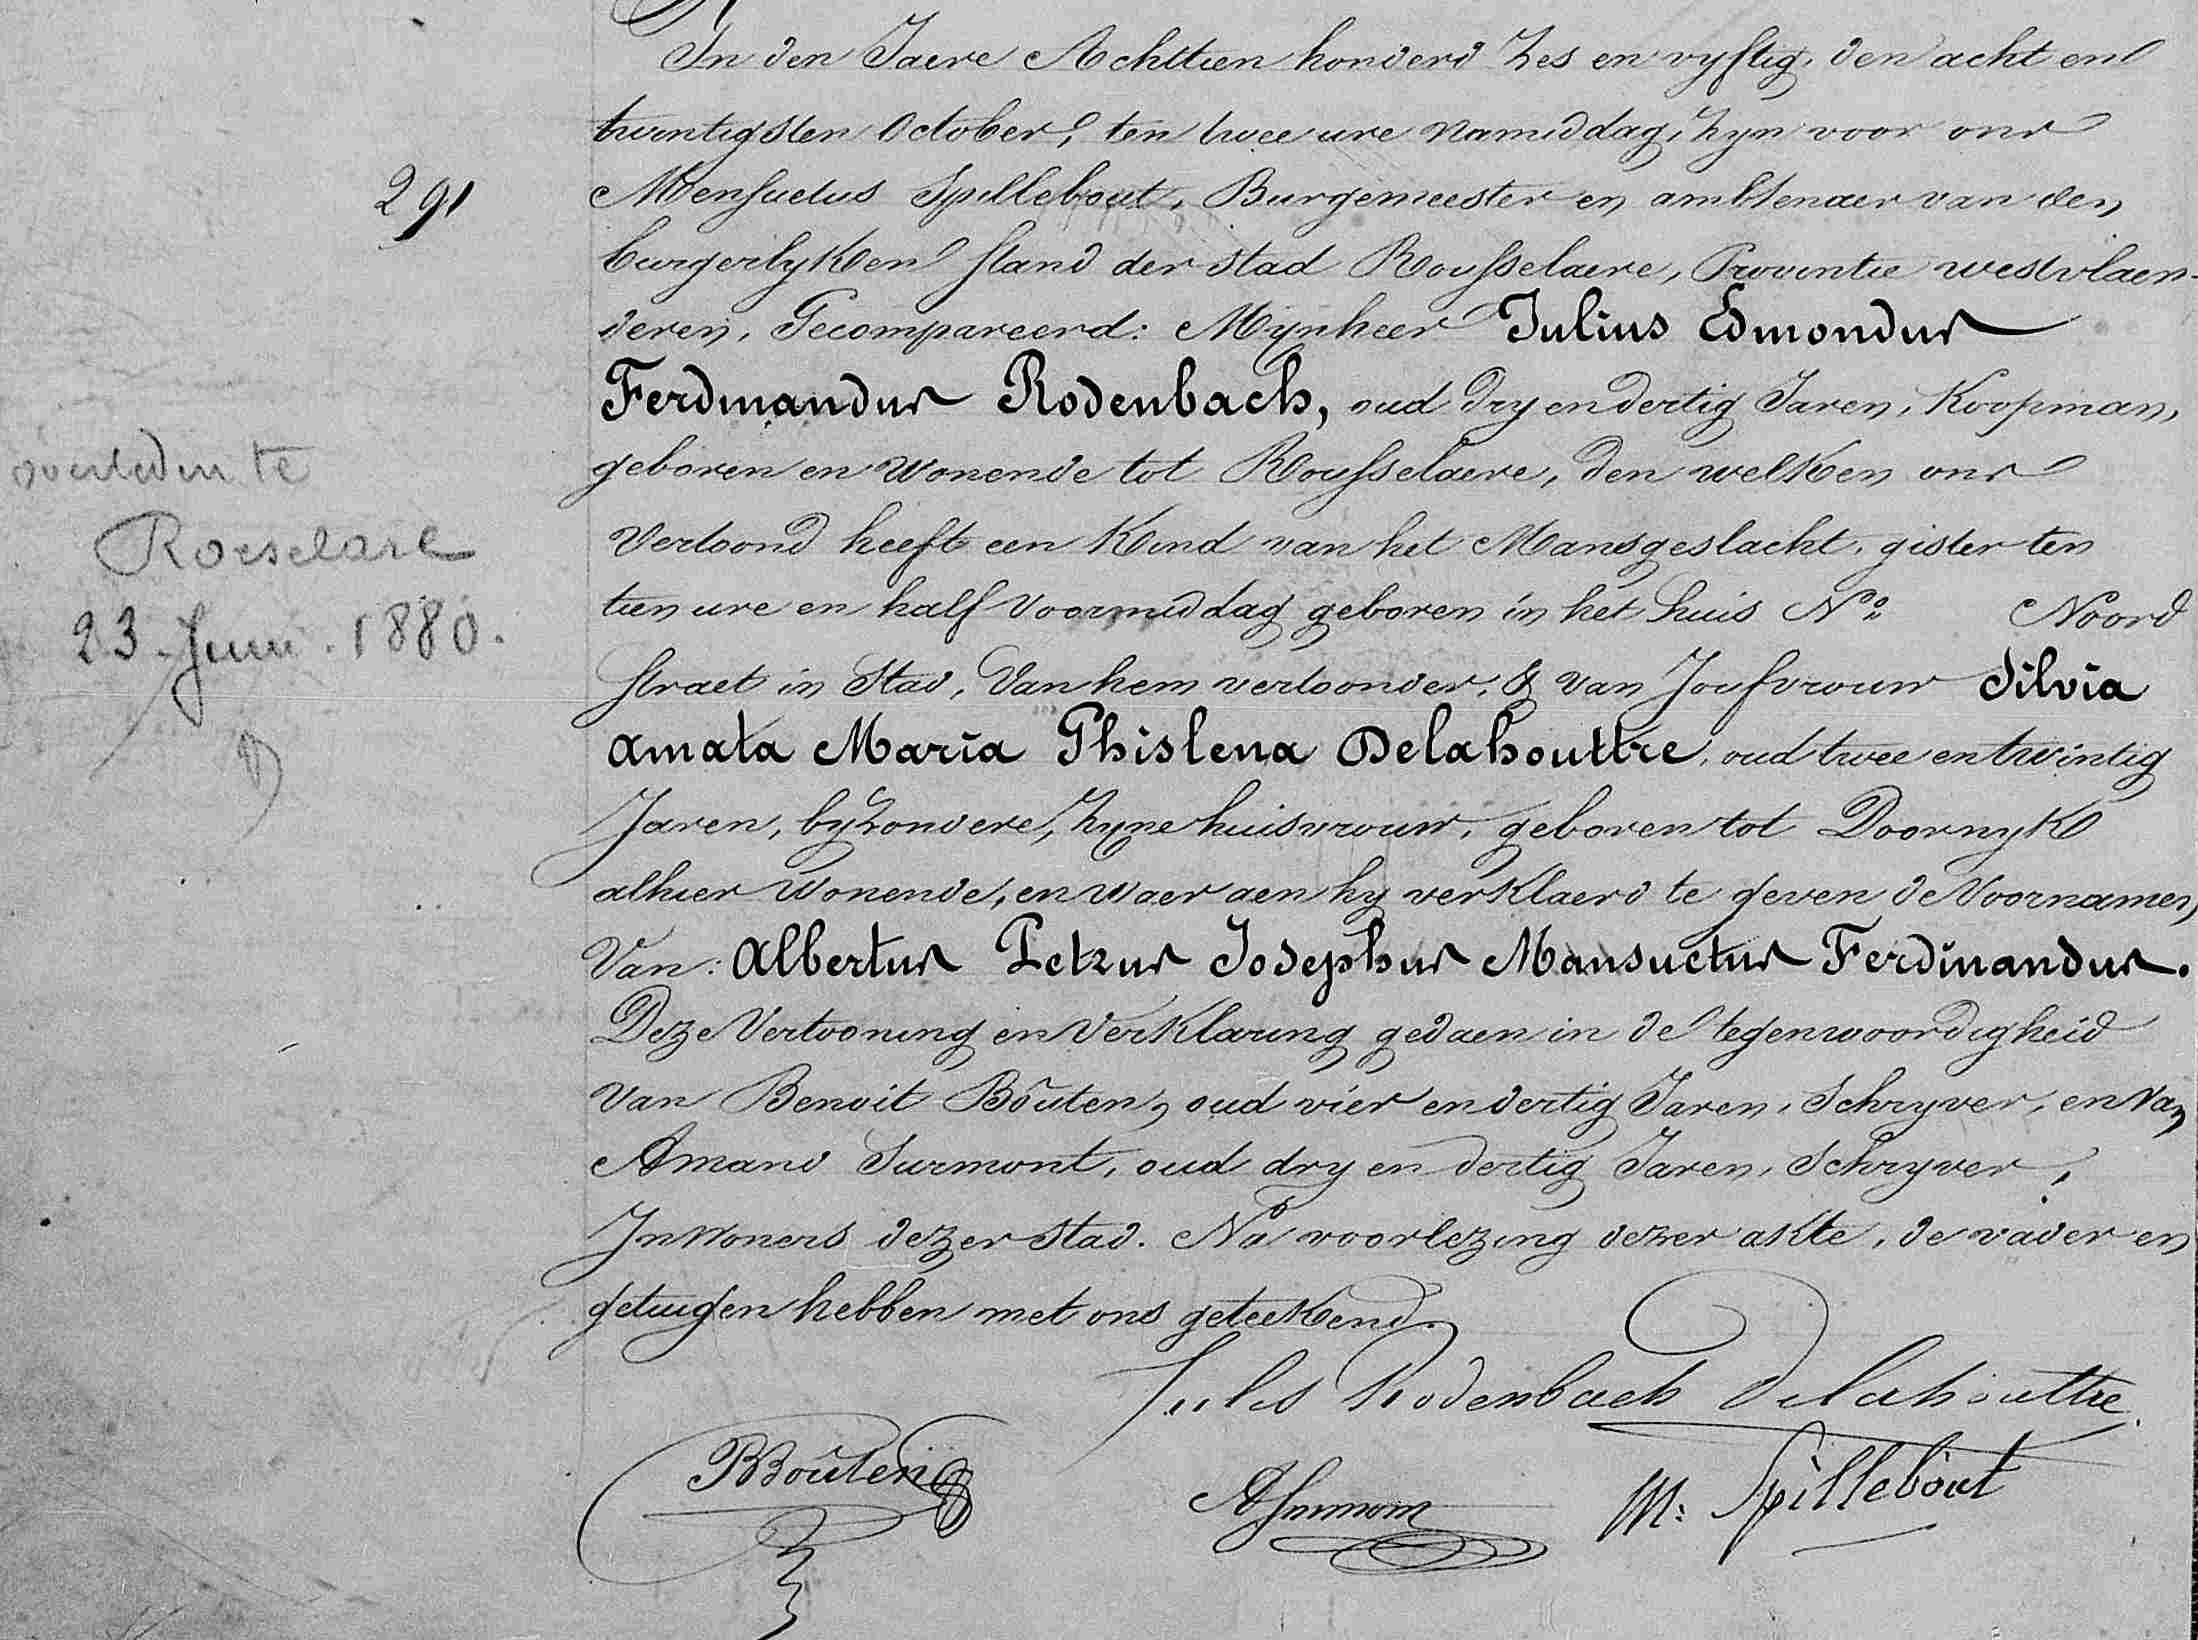 In den Jaere Achttien honderd Zes en vyftig, den acht en
twintigsten October, ten twee ure namiddag, zyn voor ons
291
Mensuetus Spillebout, Burgemeester en ambtenaer van den
burgerlyken stand der stad Rousselaere, Provintie westvlaen-
deren, Gecompareerd: Mynheer Julius Edmondus
Ferdinandus Rodenbach, oud dry en dertig Jaren, Koopman,
geboren en wonende tot Rousselaere, den welken ons
overleden te
Roeselare
23 Juni. 1880.
vertoond heeft een Kind van het Mansgeslacht, gister ten
tien ure en half voormiddag geboren in het huis Nº Noord
straet in Stad, van hem vertoonder, & van Joufvrouw Silvia
Amata Maria Ghislena Delahouttre, oud twee en twintig
Jaren, byzondere, zyne huisvrouw, geboren tot Doornyk
alhier wonende, en waer aen hy verklaerd te geven de Voornamen
Van: Albertus Petrus Josephus Mansuetus Ferdinandus.
Deze Vertooning en Verklaring gedaen in de tegenwoordigheid
van Benoit Boûten, oud vier en dertig Jaren, Schryver, en van
Amand Surmont, oud dry en dertig Jaren, Schryver,
Inwoners dezer stad. Na voorlezing dezer akte, de vader en
getuigen hebben met ons geteekend.
Jules Rodenbach Delahouttre
BBoûten
ASurmont
M: Spillebout